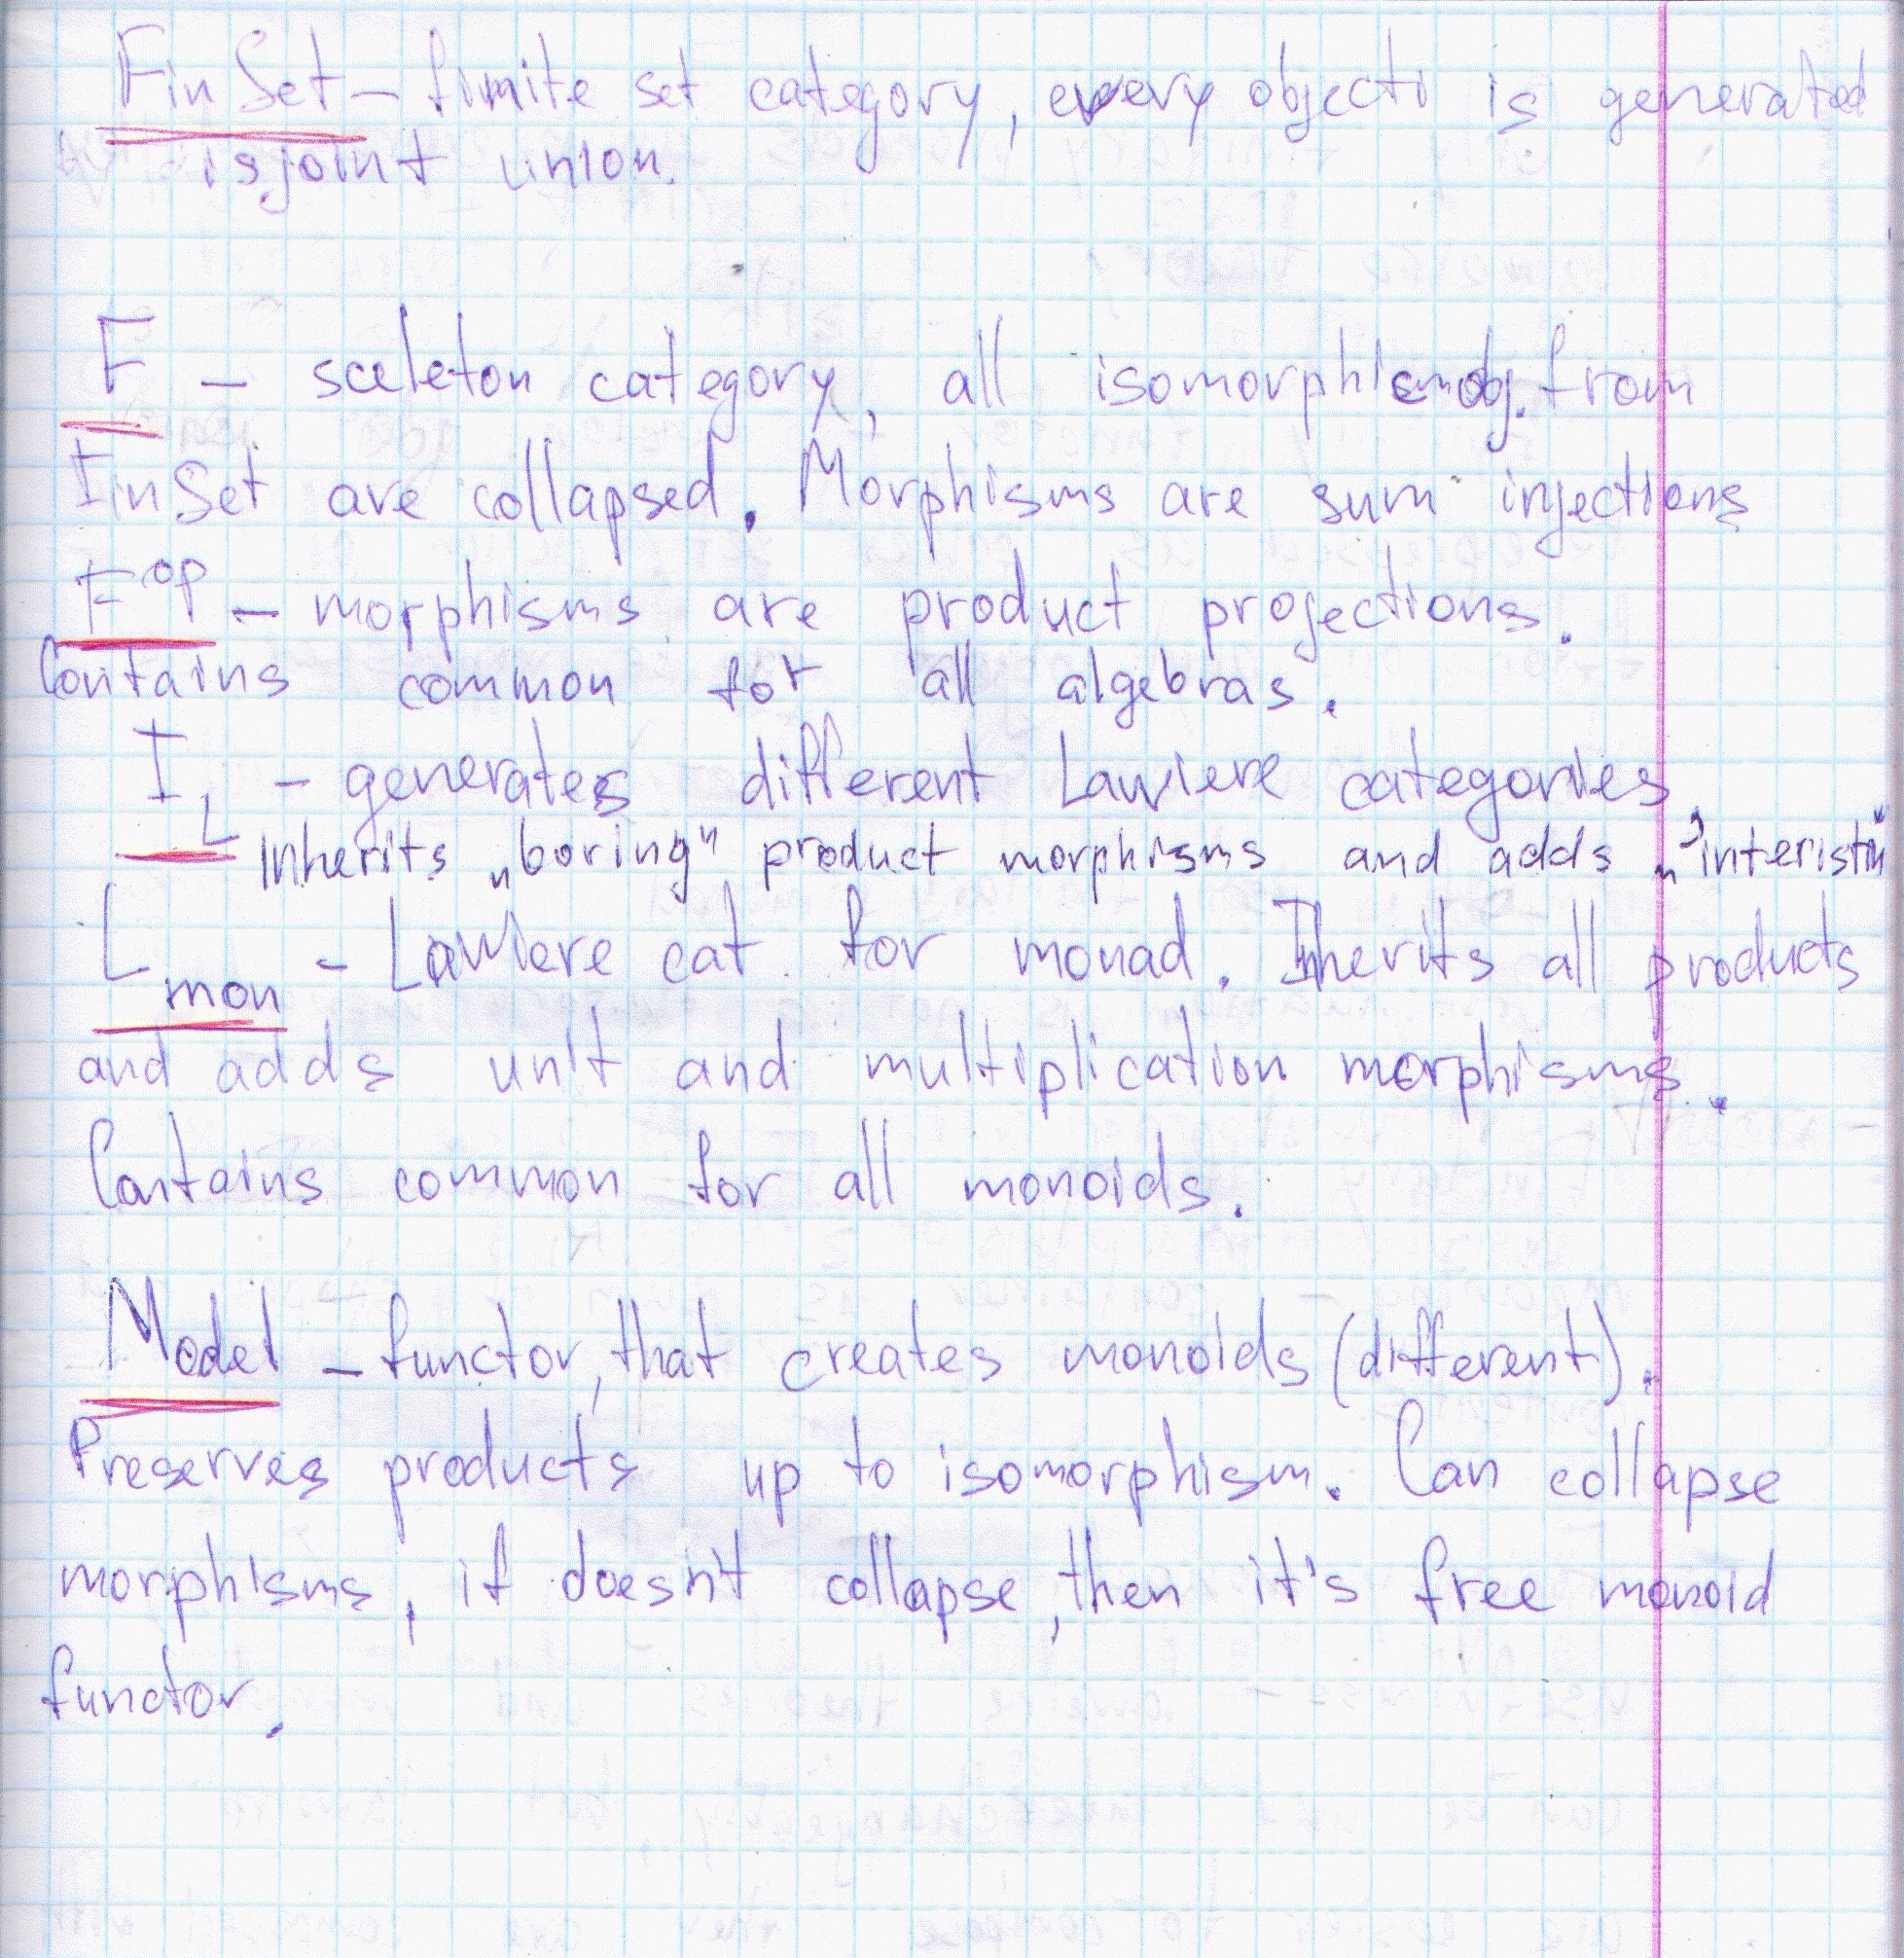 FinSet - finite set category, every object is generated
by disjoint union.
F - sceleton category, all isomorphism obj. from
FinSet are collapsed. Morphisms are sum injections
F^op - morphisms are product projections.
Contains common for all algebras.
I_L - generates different Lawvere categories,
inherits „boring" product morphisms and adds „
L_mon - Lawvere cat. for monad. Inherits all products
and adds unit and multiplication morphisms.
Contains common for all monoids.
Model - functor, that creates monoids (different).
Preserves products up to isomorphism. Can collapse
morphisms, if doesn't collapse, then it's free monoid
functor.